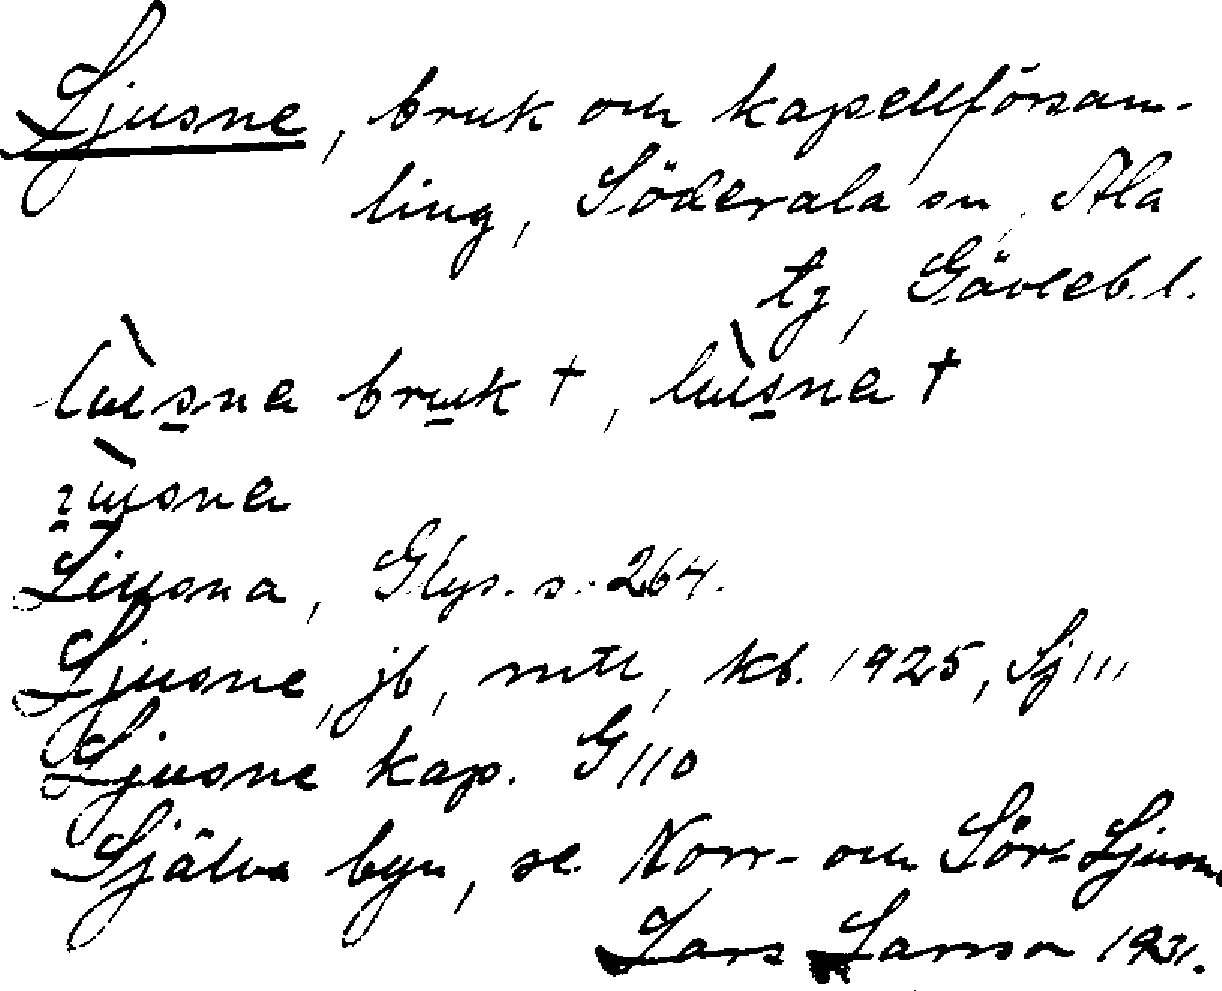 Ljusne, bruk och kapellförsam-
ling, Söderala sn, Ala
tg, Gävleb. l.
bruk †, †

Liusna, Glys. s. 264.
Ljusne, jb, mtl, kb. 1925, Sj 111
Ljusne kap. G 110
Själva byn, se Norr- och Sör-Ljusne
Lars Larsson 1931.